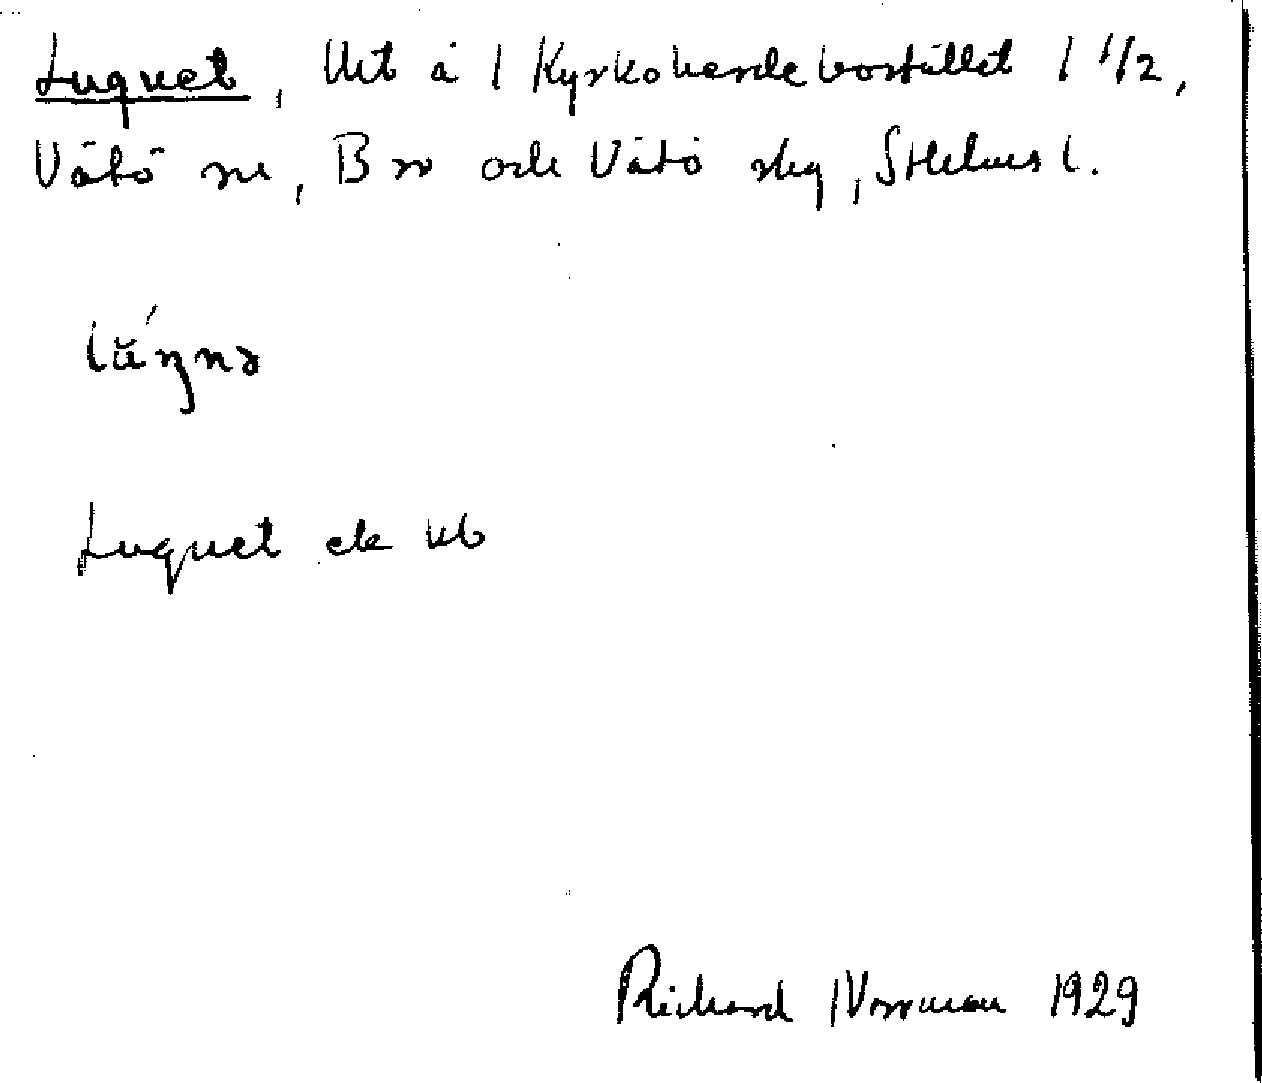 Luguet, Urt å 1 Kyrkoherdebostället 1 1/2,
Vätö sn, Bro och Vätö skg, Sthlms l.
Luguet ek
Richard Norrman 1929